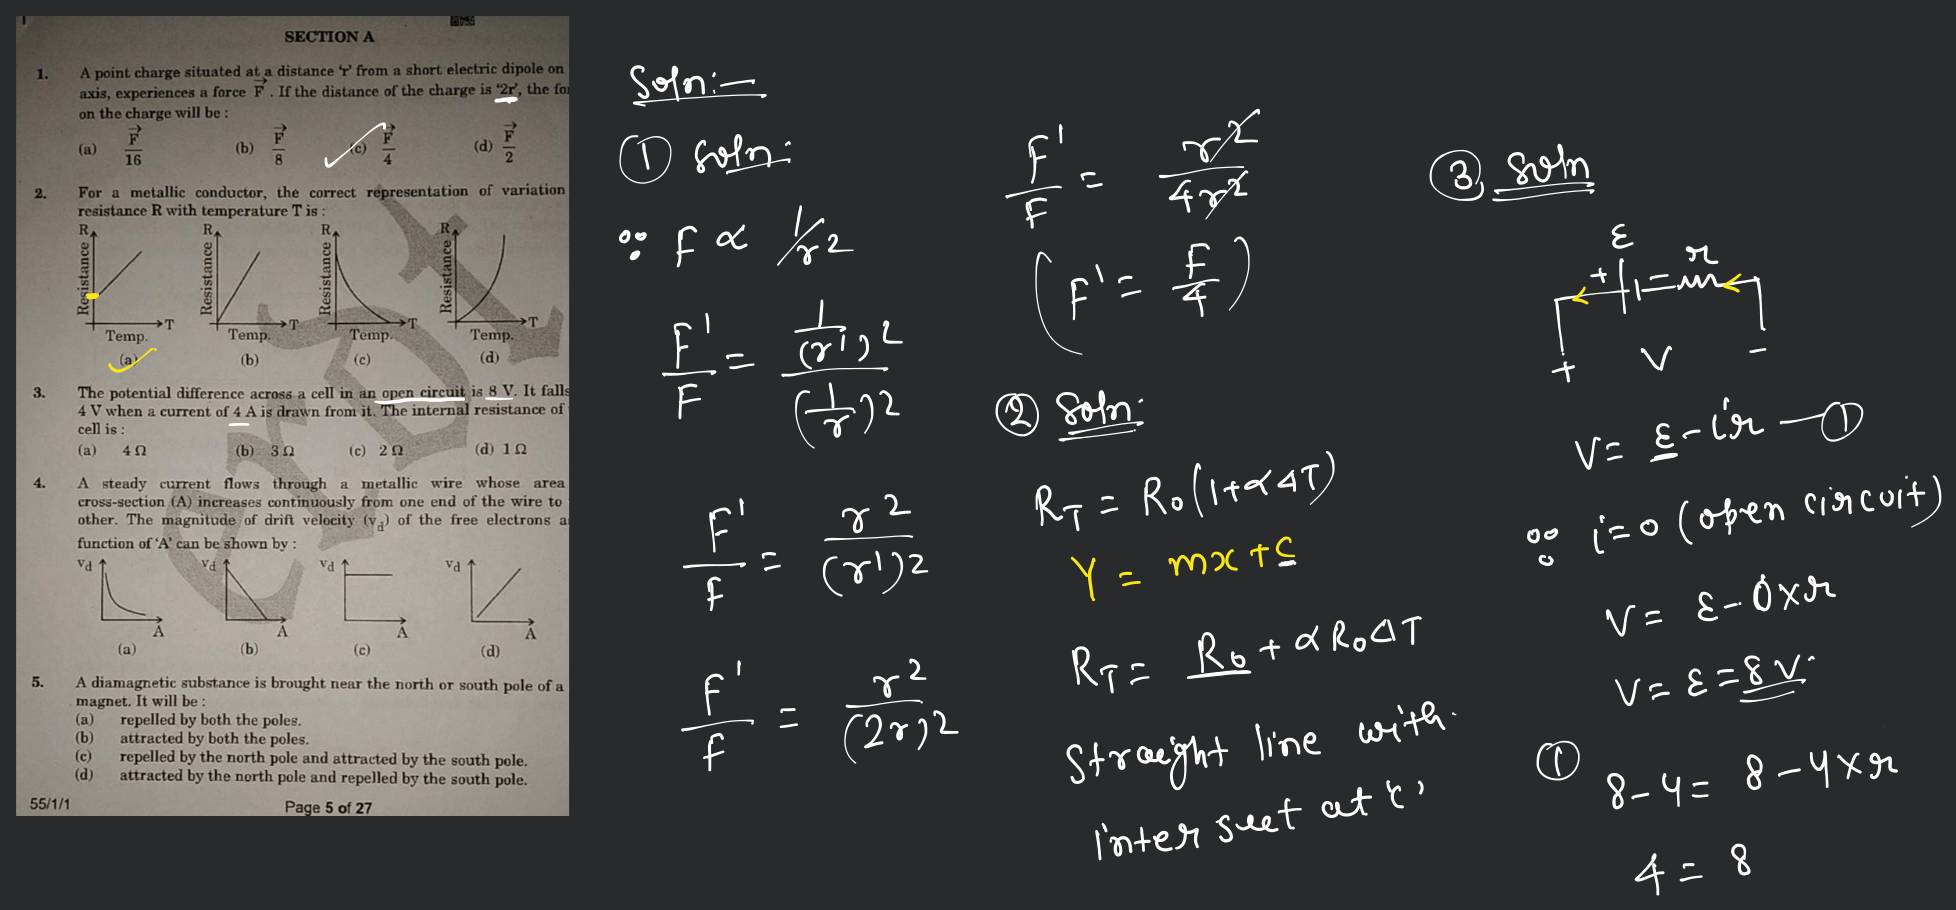 SECTION A
1. A point charge situated at a distance 'r' from a short electric dipole on
axis, experiences a force F⃗. If the distance of the charge is '2r', the
on the charge will be :
(a) F⃗/16 (b) F⃗/8 (c) F⃗/4 (d) F⃗/2
2. For a metallic conductor, the correct representation of variation
resistance R with temperature T is :
R R R R
Resistance Resistance Resistance Resistance
T T T T
Temp. Temp. Temp. Temp.
(a) (b) (c) (d)
3. The potential difference across a cell in an open circuit is 8 V. It falls
4 V when a current of 4 A is drawn from it. The internal resistance of
cell is :
(a) 4 Ω (b) 3 Ω (c) 2 Ω (d) 1 Ω
4. A steady current flows through a metallic wire whose area
cross-section (A) increases continuously from one end of the wire to
other. The magnitude of drift velocity (v_d) of the free electrons a
function of 'A' can be shown by :
v_d v_d v_d v_d
A A A A
(a) (b) (c) (d)
5. A diamagnetic substance is brought near the north or south pole of a
magnet. It will be :
(a) repelled by both the poles.
(b) attracted by both the poles.
(c) repelled by the north pole and attracted by the south pole.
(d) attracted by the north pole and repelled by the south pole.
55/1/1 Page 5 of 27
Soln:-
① Soln:
∵ F ∝ 1/r2
F'/F = (1/(r')2)/((1/r)2)
F'/F = r2/(r')2
F'/F = r2/(2r)2
F'/F = r2/4r2
(F' = F/4)
② Soln:
R_T = R_0(1+αΔT)
Y = mx+c
R_T = R_0 + αR_0ΔT
Straight line with
intersect at 'c'
③ Soln
ε
+ r
+ V -
V = ε - ir — ①
∵ i=0 (open circuit)
V = ε - 0×r
V = ε = 8V.
① 8-4 = 8-4×r
4 = 8